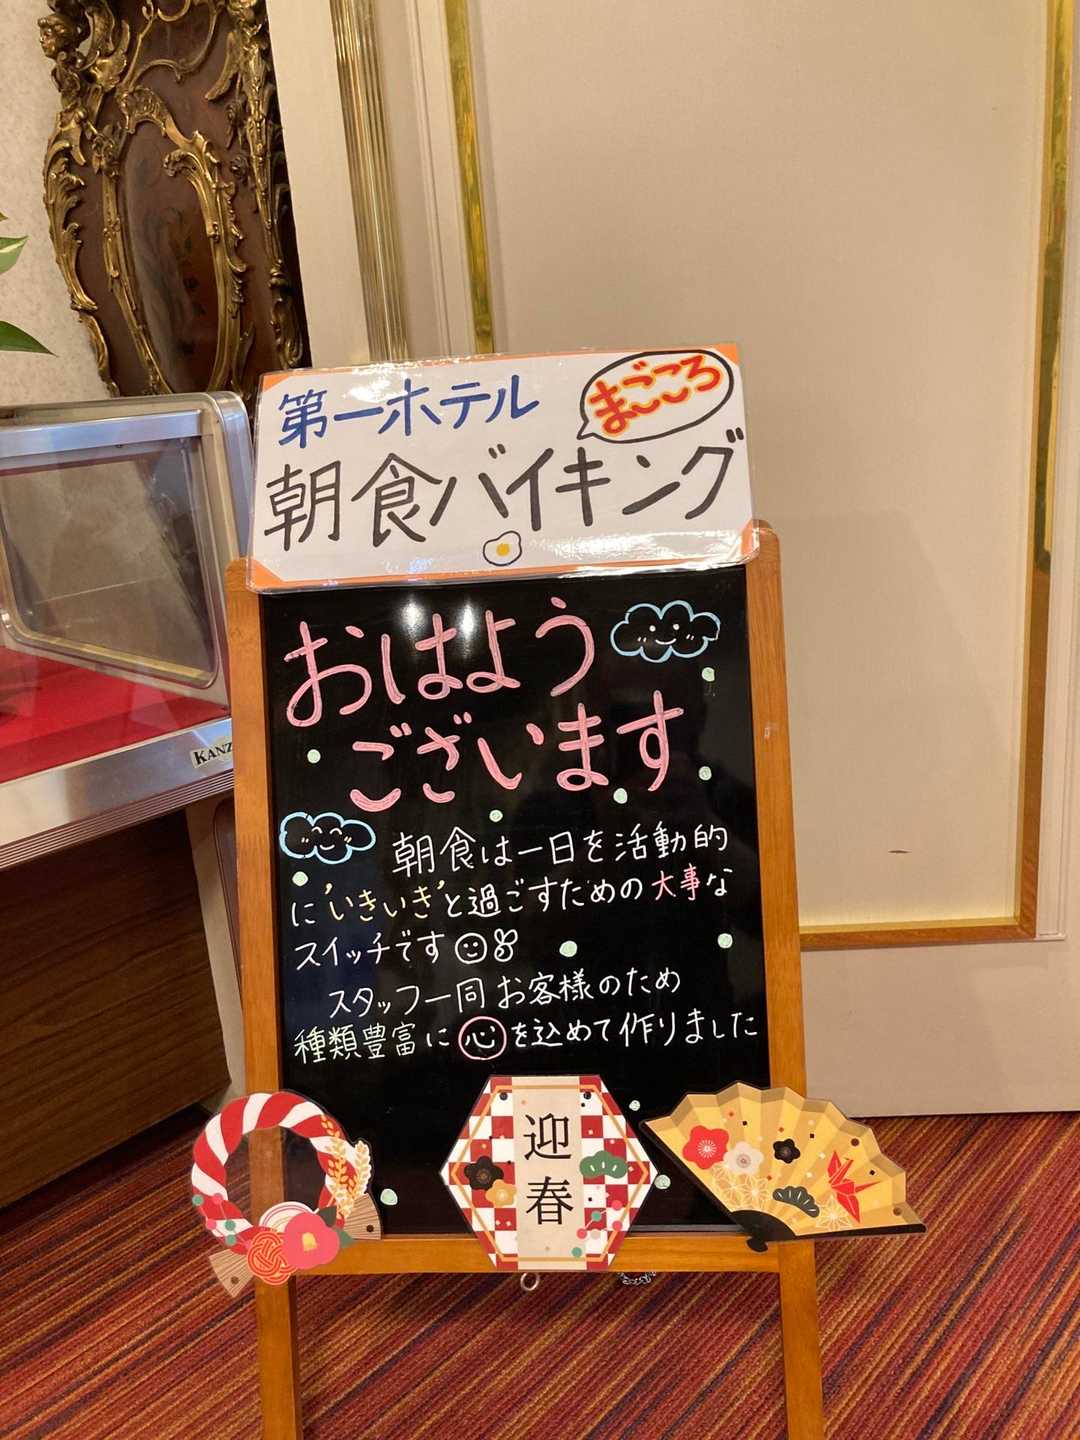 第一ホテル
まごころ
朝食バイキング
おはよう
ございます
朝食は一日を活動的
に'いきいき'と過ごすための大事な
スイッチです
スタッフ一同 お客様のため
種類豊富に心を込めて作りました
迎春
KANZ